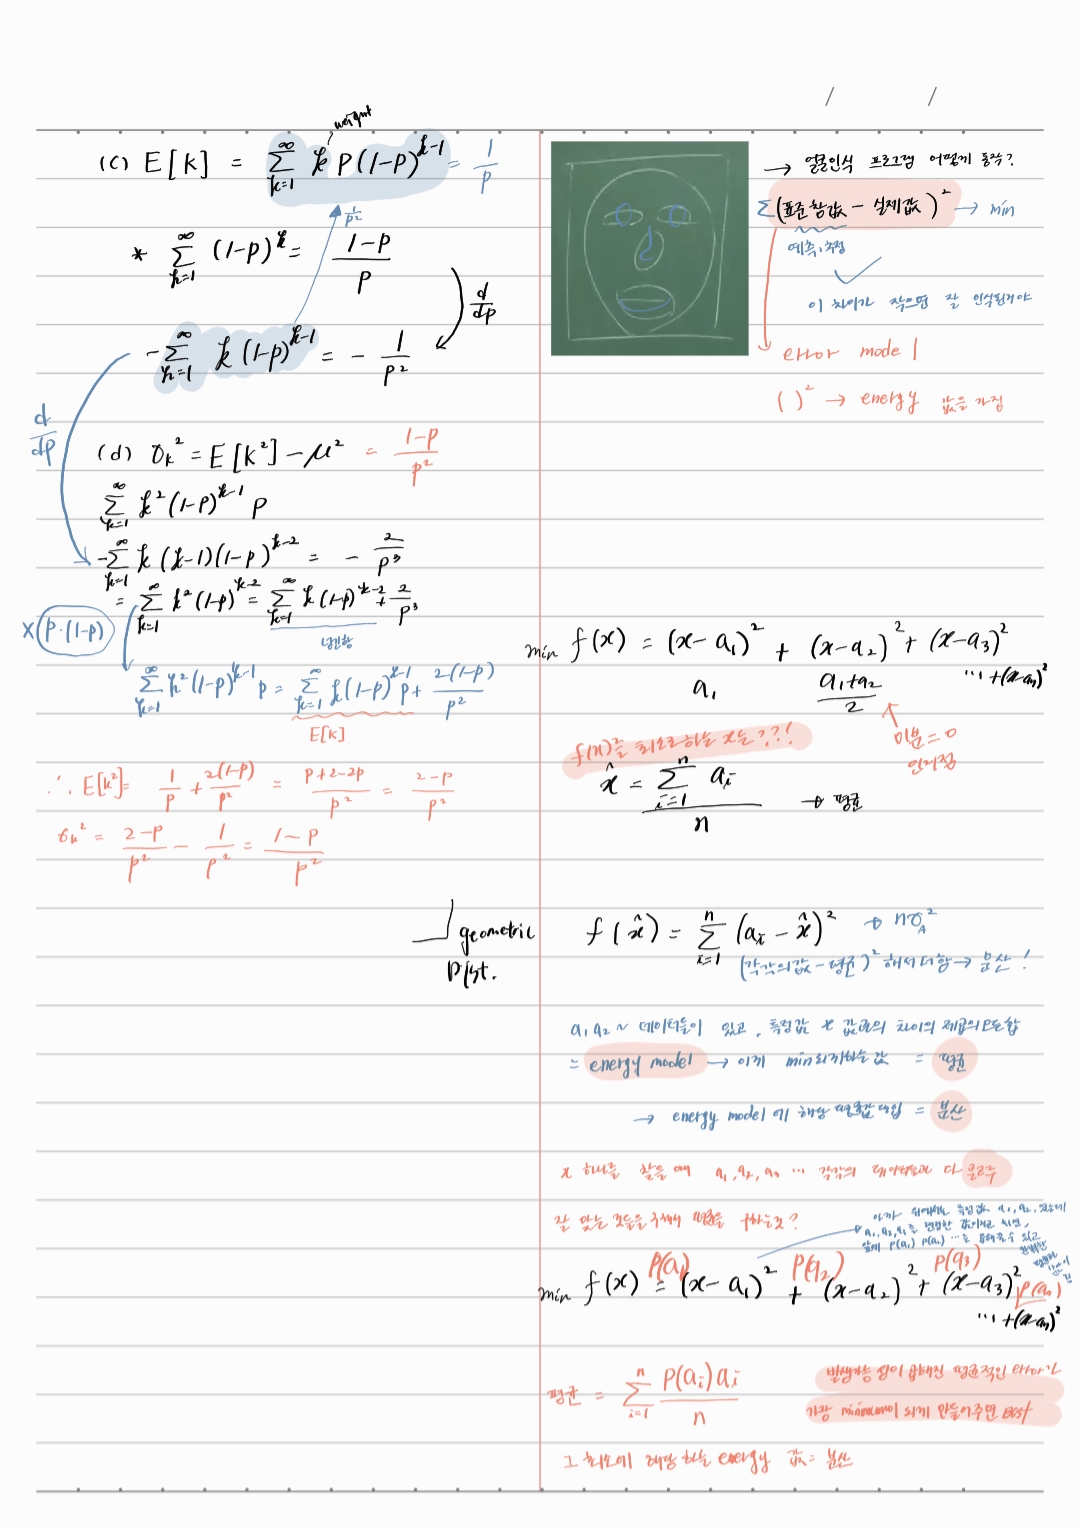 weight
(c) E[k] = ∑_{k=1}^{∞} k p(1-p)^{k-1} = 1/p
1/p²
* ∑_{k=1}^{∞} (1-p)^k = (1-p)/p
d/dp
-∑_{k=1}^{∞} k(1-p)^{k-1} = - 1/p²
d/dp
(d) σ_k² = E[k²] - μ² = (1-p)/p²
∑_{k=1}^{∞} k²(1-p)^{k-1} p
-∑_{k=1}^{∞} k(k-1)(1-p)^{k-2} = - 2/p³
= ∑_{k=1}^{∞} k²(1-p)^{k-2} = ∑_{k=1}^{∞} k(1-p)^{k-2} + 2/p³
x(p·(1-p))
넘긴항
∑_{k=1}^{∞} k²(1-p)^{k-1} p = ∑_{k=1}^{∞} k(1-p)^{k-1} p + 2(1-p)/p²
E[k]
∴ E[k²] = 1/p + 2(1-p)/p² = (p+2-2p)/p² = (2-p)/p²
σ_k² = (2-p)/p² - 1/p² = (1-p)/p²
geometric
Dist.
→ 얼굴인식 프로그램 어떻게 동작?
∑(표준 참값 - 실제값)² → min
예측, 추정
이 차이가 작으면 잘 인식된거야
error model
( )² → energy 값을 가짐
min f(x) = (x-a₁)² + (x-a₂)² + (x-a₃)²
… +(x-aₙ)²
a₁ (a₁+a₂)/2
미분=0
인지점
f(x)를 최소로하는 x는???!
x̂ = ∑_{i=1}^{n} aᵢ / n → 평균
f(x̂) = ∑_{i=1}^{n} (aᵢ - x̂)² → nσ_A²
(각각의값 - 평균)² 해서 더함 → 분산!
a₁ a₂ ~ 데이터들이 있고, 특정값 x 값과의 차이의 제곱의 모든합
= energy model → 이게 min되게하는 값 = 평균
→ energy model 에 해당 평균값 대입 = 분산
x 하나를 찾을 때 a₁, a₂, a₃ … 각각의 데이터들과 다
잘 맞는 것들을 구해서 평균을 구하는것?
min f(x) = P(a₁)(x-a₁)² + P(a₂)(x-a₂)² + P(a₃)(x-a₃)²
… + P(aₙ)(x-aₙ)²
평균 = ∑_{i=1}^{n} P(aᵢ)aᵢ / n
발생가능성이 곱해진 평균적인 error가
가장 minimum이 되게 만들어주면 Best
그 최소에 해당하는 energy 값 = 분산